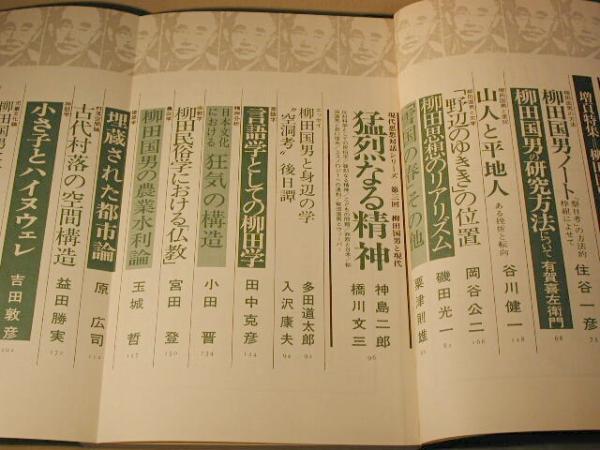 増頁特集=柳田
柳田国男ノート
"祭日考"への方法的
枠組によせて
住谷一彦
74
柳田国男の研究方法について
有賀喜左衛門
68
山人と平地人
ある挫折と転向
谷川健一
148
「野辺のゆきき」の位置
岡谷公二
166
柳田思想のリアリズム
磯田光一
82
『雪国の春』その他
粟津則雄
現代思想対話シリーズ・第二回 柳田国男と現代
猛烈なる精神
神島二郎
橋川文三
96
エッセイ
柳田国男と身辺の学
多田道太郎
94
"空洞考"後日譚
入沢康夫
94
言語学
言語学としての柳田学
田中克彦
124
精神分析
日本文化における狂気の構造
小田晋
134
宗教学
柳田民俗学における「仏教」
宮田登
150
農業史
柳田国男の農業水利論
玉城哲
埋蔵された都市論
原広司
古代村落の空間構造
益田勝実
172
小さ子とハイヌウェレ
吉田敦彦
202
柳田国男と